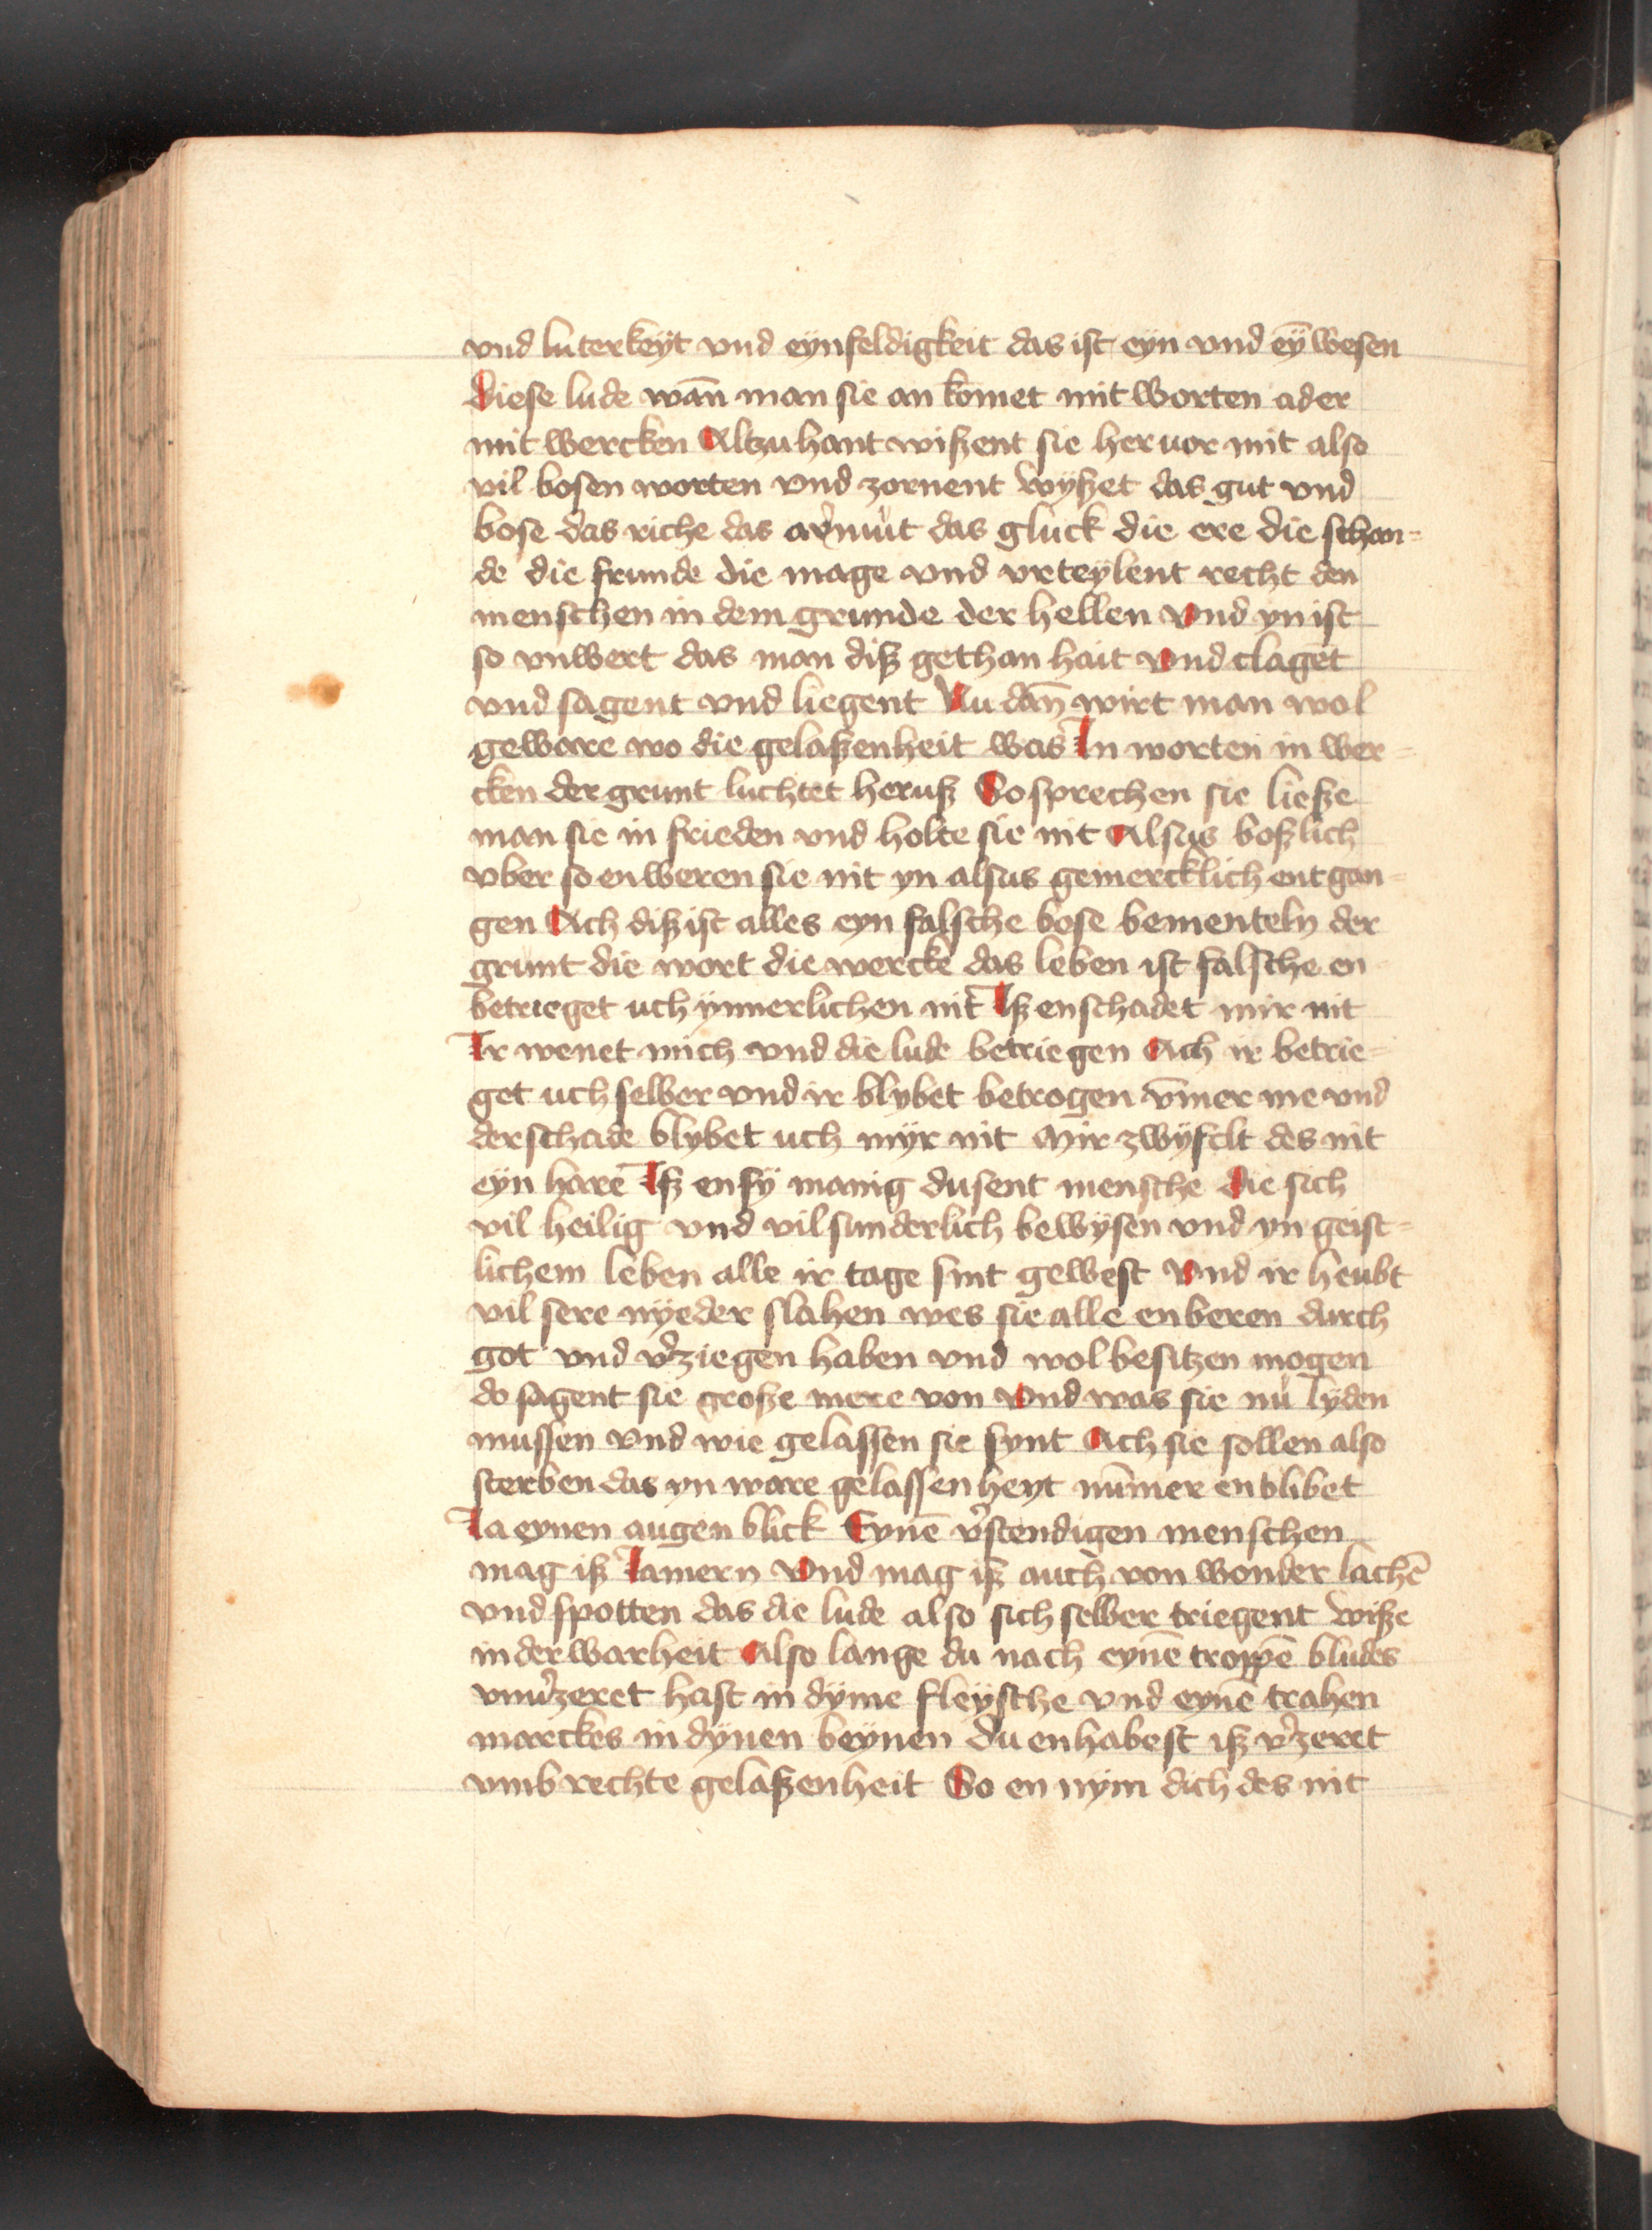 vnd luterkeÿt vnd eÿnfeldigkeit das ist eyn vnd eȳ wesen
Diese lude wan̄ man sie an komet mit worten ader
mit wercken Altzu hant wißent sie her vor mit also
vil bosen worten vnd zornent wyßet das gut vnd
bose das riche das armůt das gluck die ere die schan=
de die frunde die mage vnd vrteÿlent recht den
menschen in dem grunde der hellen Vnd yn ist
so vnwert das man diß gethan hait Vnd claget
vnd sagent vnd liegent Nu dan̄ wirt man wol
geware wo die gelaßenheit was In worten in wer=
cken der grunt luchtet heruß So sprechen sie ließe
man sie in frieden vnd holte sie nit Alsus boßlich
vber so en weren sie nit yn alsus gemercklich entgan=
gen Ach diß ist alles eyn falsche bose bementeln der
grunt die wort die wercke das leben ist falsche en
betrieget uch ÿnnerlichen nit Iß enschadet mir nit
Ir wenet mich vnd die lude betriegen Ach ir betrie=
get uch selber vnd ir blybet betrogen vm̄er me vnd
der schade blybet uch mÿr nit Mir zwÿfelt des nit
eyn harē Iß en sÿ manig dusent mensche Die sich
vil heilig vnd vil sunderlich bewÿsen vnd yn geist=
lichem leben alle ir tage sint gewest Vnd ir heubt
vil sere nÿeder slahen wes sie alle enberen durch
got vnd v͛ziegen haben vnd wol besitzen mogen
do sagent sie große mere von Vnd was sie nů lÿden
mussen vnd wie gelassen sie synt Ach sie sollen also
sterben das yn ware gelassenheyt num̄er en blibet
Ia eynen augen blick Eynē v͛stendigen menschen
mag iß Iamern Vnd mag iß auch von wonder lachē
vnd spotten das die lude also sich selber triegent wiße
in der warheit Also lange du nach eynē troppē bludes
vnu͛zeret hast in dÿme fleÿsche vnd eynē trahen
marckes in dÿnen beÿnen du en habest iß v͛zeret
vmb rechte gelaßenheit So en nÿm dich des nit